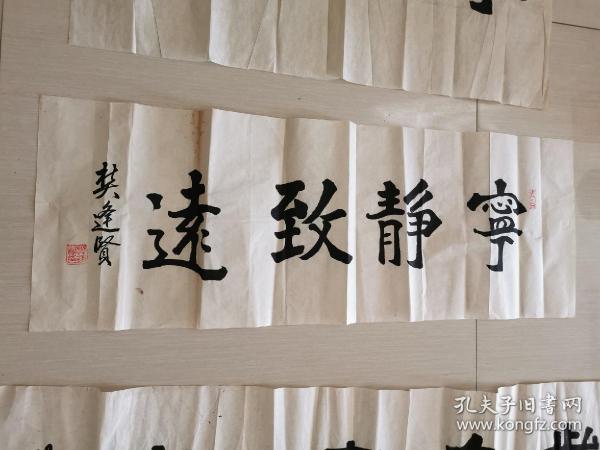 寧靜致遠
樊逢賢
孔夫子旧书网
www.kongfz.com